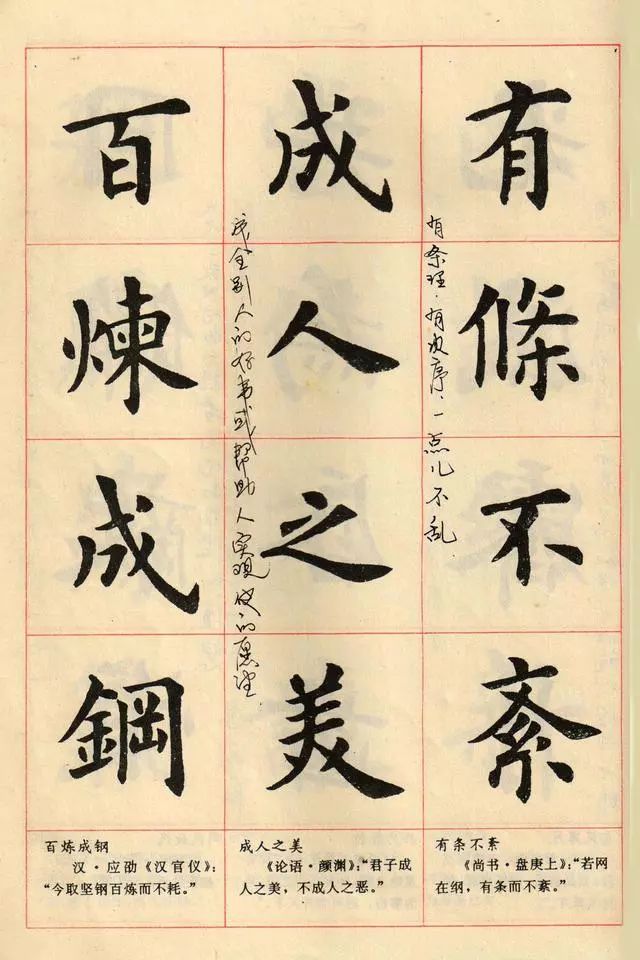 有條不紊
有条理．有次序．一点儿不乱
成人之美
成全别人的好事或帮助人实现的愿望
百煉成鋼
有条不紊
《尚书·盘庚上》：“若网
在纲，有条而不紊。”
成人之美
《论语·颜渊》：“君子成
人之美，不成人之恶。”
百炼成钢
汉·应劭《汉官仪》：
“今取坚钢百炼而不耗。”